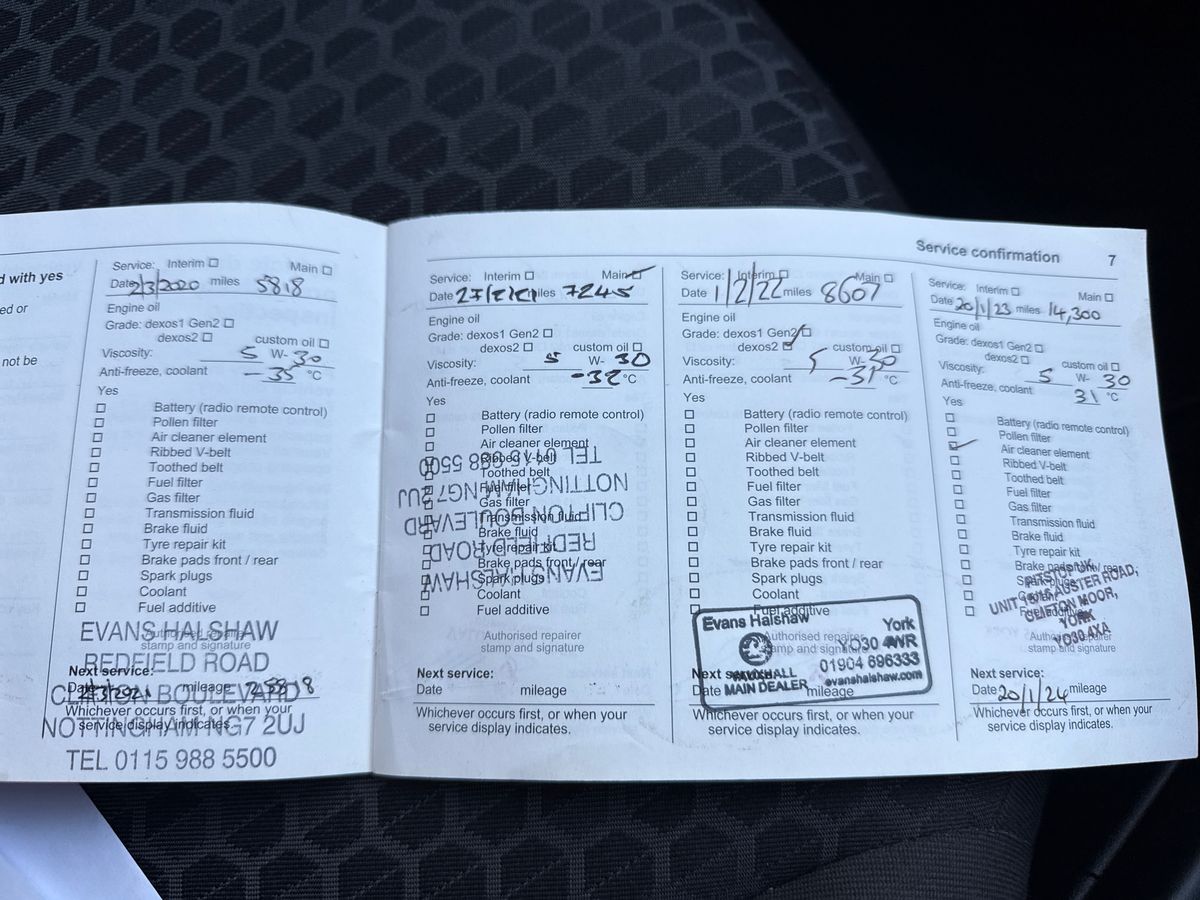 d with yes
ed or
not be
Service: Interim Main
Date 2/3/2020 miles 5818
Engine oil
Grade: dexos1 Gen2
dexos2 custom oil
Viscosity: 5 W- 30
Anti-freeze, coolant -35 °C
Yes
Battery (radio remote control)
Pollen filter
Air cleaner element
Ribbed V-belt
Toothed belt
Fuel filter
Gas filter
Transmission fluid
Brake fluid
Tyre repair kit
Brake pads front / rear
Spark plugs
Coolant
Fuel additive
EVANS HALSHAW
Authorised repairer
stamp and signature
REDFIELD ROAD
Next service:
Date mileage
CLIFTON BOULEVARD
Whichever occurs first, or when your
service display indicates.
NOTTINGHAM NG7 2UJ
TEL 0115 988 5500
Service confirmation 7
Service: Interim Main
Date miles 7245
Engine oil
Grade: dexos1 Gen2
dexos2 custom oil
Viscosity: 5 W- 30
Anti-freeze, coolant -32 °C
Yes
Battery (radio remote control)
Pollen filter
Air cleaner element
Ribbed V-belt
Toothed belt
Fuel filter
Gas filter
Transmission fluid
Brake fluid
Tyre repair kit
Brake pads front / rear
Spark plugs
Coolant
Fuel additive
EVANS HALSHAW
REDFIELD ROAD
CLIFTON BOULEVARD
NOTTINGHAM NG7 2UJ
TEL 0115 988 5500
Authorised repairer
stamp and signature
Next service:
Date mileage
Whichever occurs first, or when your
service display indicates.
Service: Interim Main
Date 1/2/22 miles 8607
Engine oil
Grade: dexos1 Gen2
dexos2 custom oil
Viscosity: 5 W- 30
Anti-freeze, coolant -31 °C
Yes
Battery (radio remote control)
Pollen filter
Air cleaner element
Ribbed V-belt
Toothed belt
Fuel filter
Gas filter
Transmission fluid
Brake fluid
Tyre repair kit
Brake pads front / rear
Spark plugs
Coolant
Fuel additive
Evans Halshaw York
Authorised repairer
stamp and signature
YO30 4WR
01904 696333
Next service:
VAUXHALL
evanshalshaw.com
Date mileage
MAIN DEALER
Whichever occurs first, or when your
service display indicates.
Service: Interim Main
Date 20/1/23 miles 14,300
Engine oil
Grade: dexos1 Gen2
dexos2 custom oil
Viscosity: 5 W- 30
Anti-freeze, coolant 31 °C
Yes
Battery (radio remote control)
Pollen filter
Air cleaner element
Ribbed V-belt
Toothed belt
Fuel filter
Gas filter
Transmission fluid
Brake fluid
Tyre repair kit
Brake pads front / rear
Spark plugs
Coolant
Fuel additive
UNIT ROAD,
CLIFTON MOOR,
YORK
YO30 4XA
Authorised repairer
stamp and signature
Next service:
Date 20/1/24 mileage
Whichever occurs first, or when your
service display indicates.